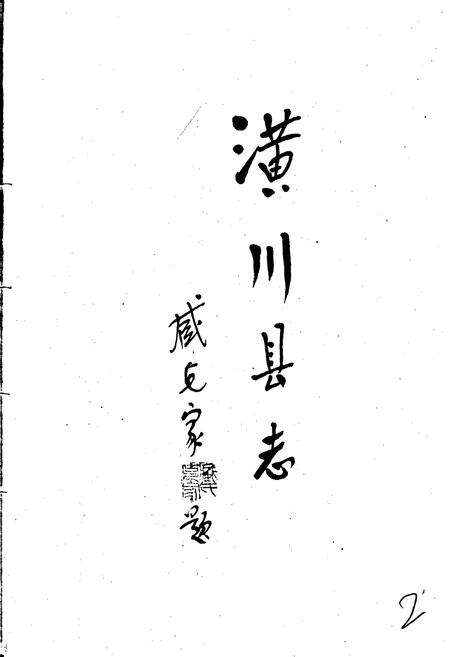 潢川县志
臧克家
题
2